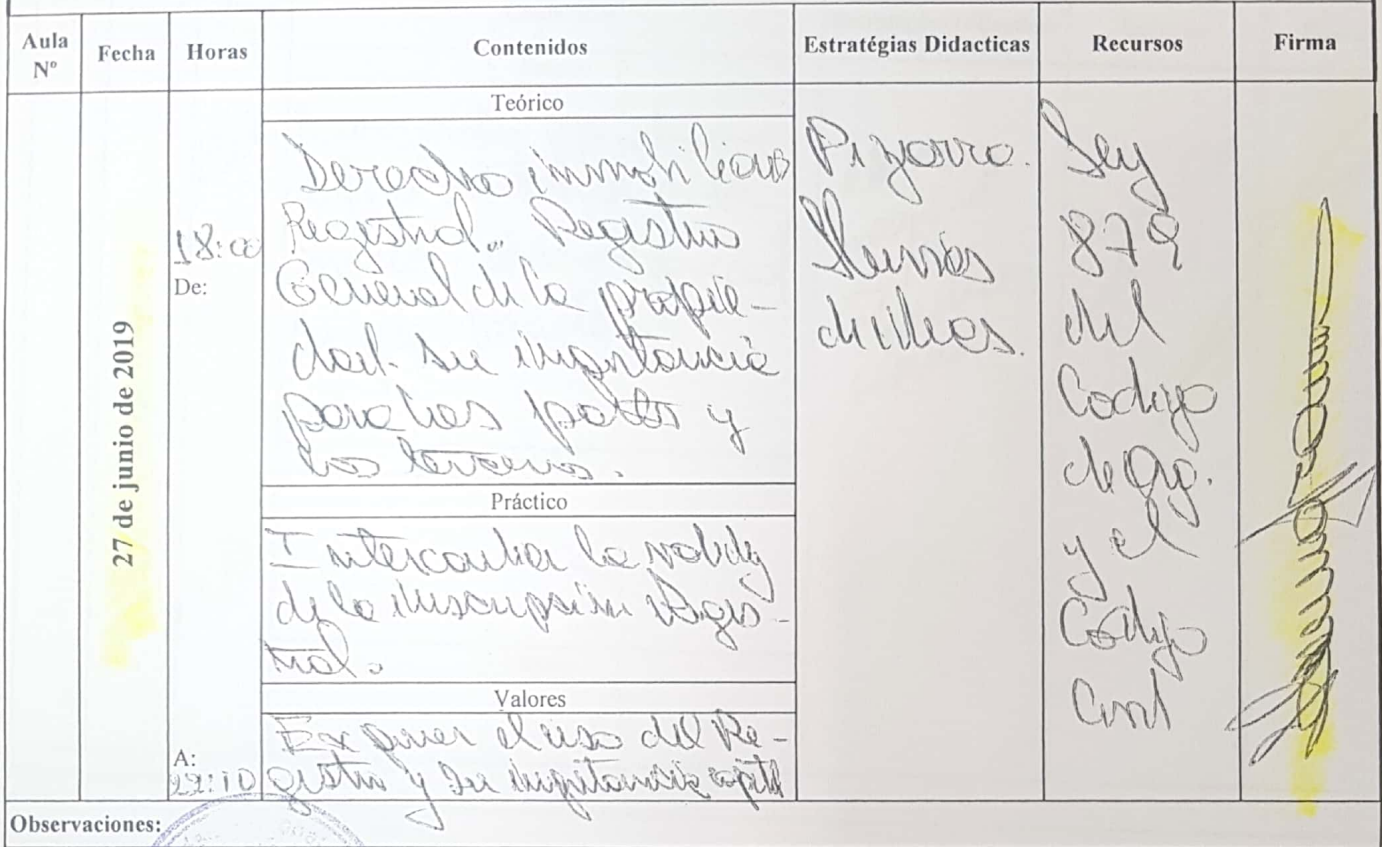 Aula Nº
Fecha
Horas
Contenidos
Estratégias Didacticas
Recursos
Firma
27 de junio de 2019
18:00
De:
A:
22:10
Teórico
Derecho inmobiliario
Registral. Registro
General de la propie-
dad. Su importancia
para las partes y
los terceros.
Práctico
Intercambiar la validez
de la inscripsión Regis-
tral.
Valores
Exponer el uso del Re-
gistro y su importancia
Pizarra.
Ley
879
del
Codigo
de Org.
y el
Codigo
Civil
Observaciones: